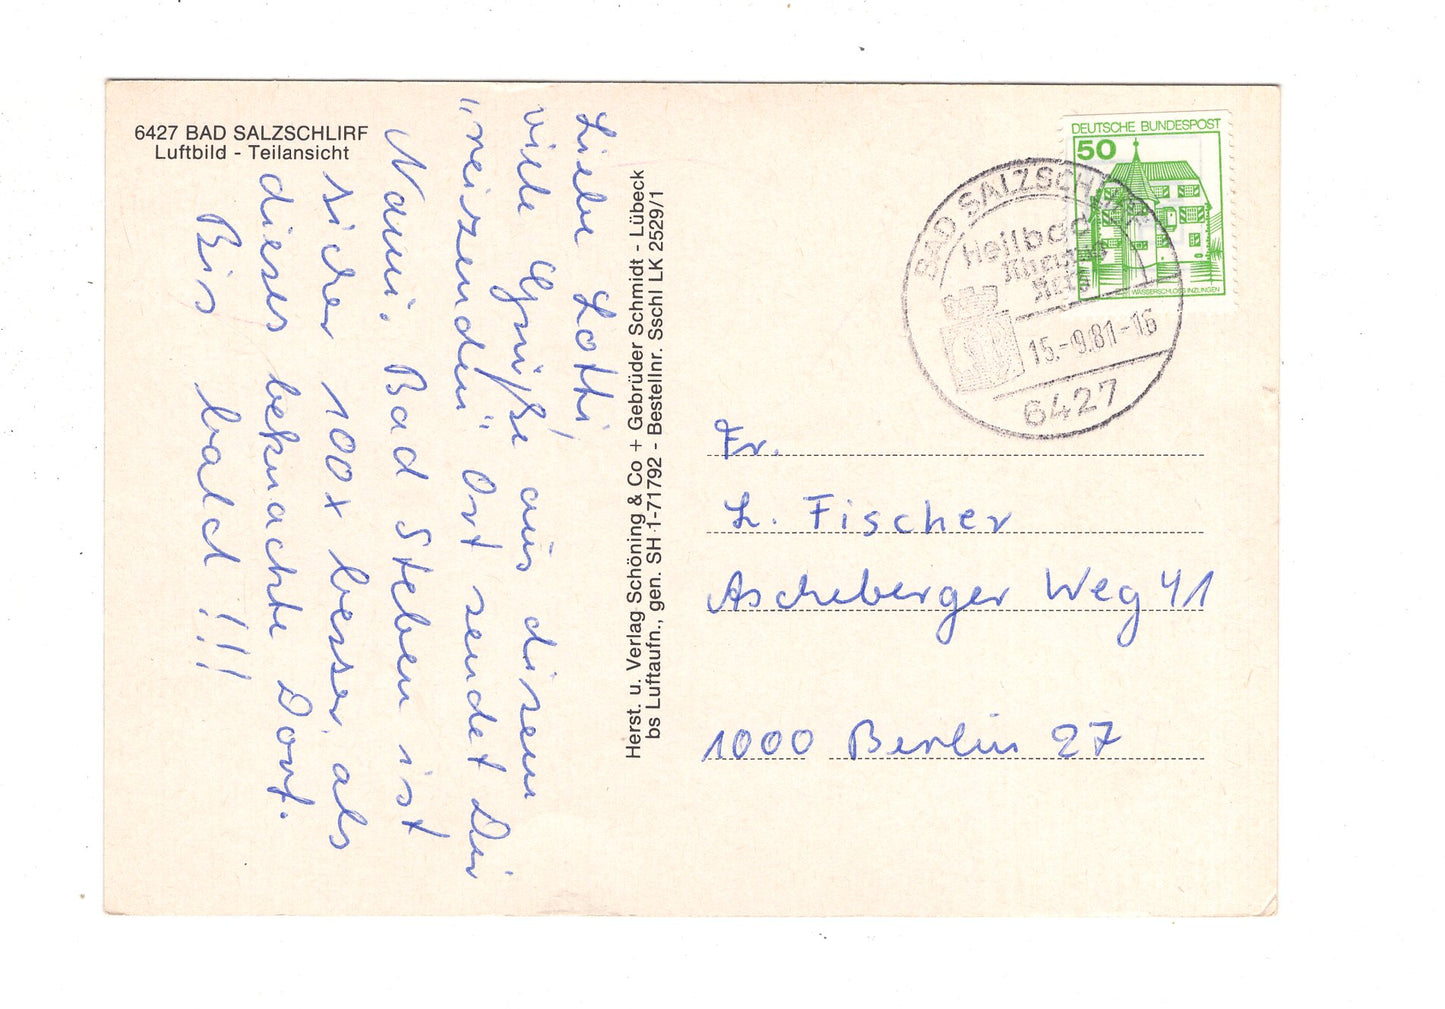 6427 BAD SALZSCHLIRF
Luftbild - Teilansicht
Liebe Lotti,
viele Grüße aus disem
"reizenden" Ort sendet Dir
Nami. Bad Steben ist
sicher 100x besser, als
dieses beknackte Dorf.
Bis bald!!!
Herst. u. Verlag Schöning & Co + Gebrüder Schmidt - Lübeck
bs Luftaufn., gen. SH 1-71792 - Bestellnr. Sschl LK 2529/1
DEUTSCHE BUNDESPOST
50
WASSERSCHLOSS INZLINGEN
BAD SALZSCHLIRF
Heilbad
Rheuma
15.-9.81-16
6427
Fr.
L. Fischer
Ascheberger Weg 41
1000 Berlin 27